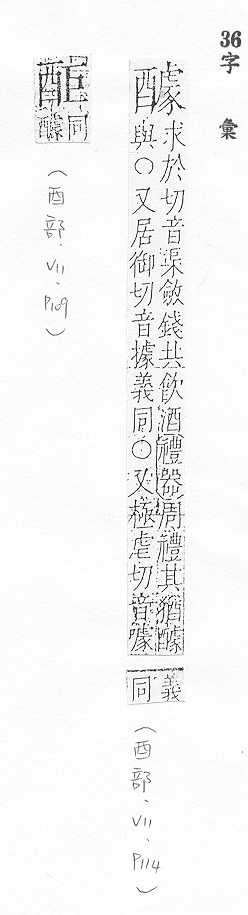 36
字彙
醵
求於切音渠斂錢共飲酒禮器周禮其猶醵
與○又居御切音據義同○又極虐切音噱
義
同
（酉部．V11．P114）
同
醵
（酉部．V11．P109）